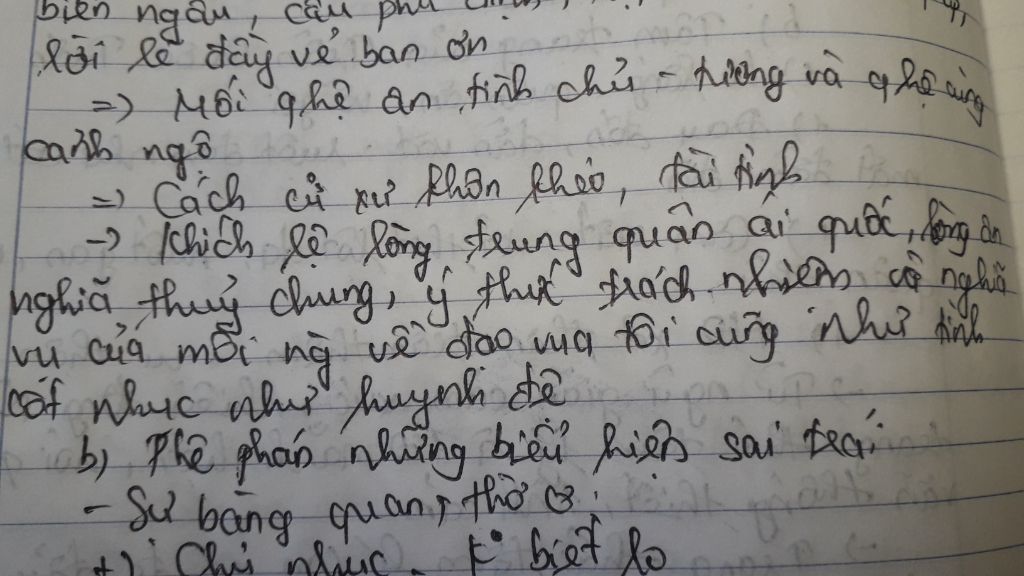 biền ngẫu, câu phủ
lời lẽ đầy vẻ ban ơn
=> Mối qhệ ân tình chủ - tướng và qhệ cùng
cảnh ngộ
=> Cách cư xử khôn khéo, tài tình
-> Khích lệ lòng trung quân ái quốc, lòng ân
nghĩa thuỷ chung, ý thức trách nhiệm và nghĩa
vụ của mỗi ng về đạo vua tôi cũng như tình
cốt nhục như huynh đệ
b) Phê phán những biểu hiện sai trái
- Sự bàng quan, thờ ơ:
+) Chủ nhục, k° biết lo